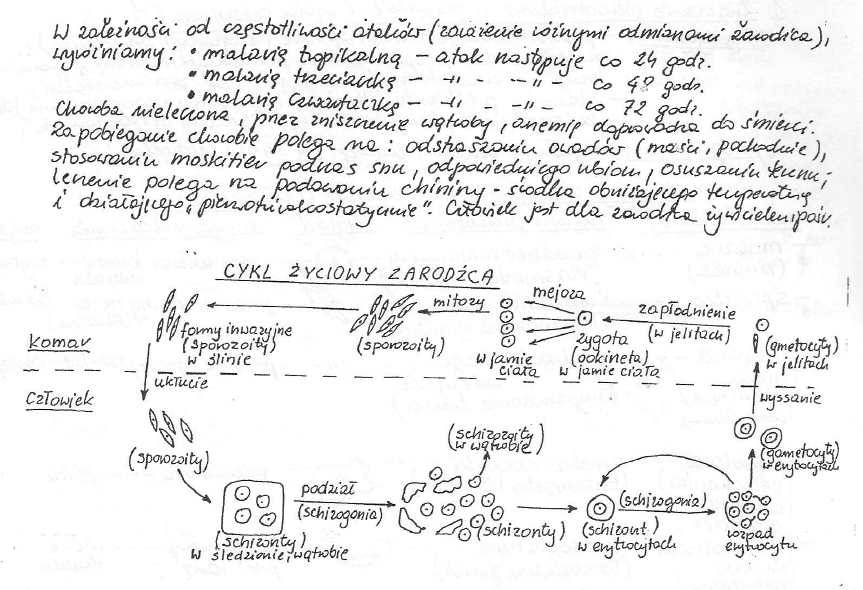 W zależności od częstotliwości ataków (zarażenie różnymi odmianami zarodźca),
wyróżniamy: • malarią tropikalną – atak następuje co 24 godz.
• malarią trzeciaczkę – –„– – –„– co 48 godz.
• malarią czwartaczkę – –„– –„– co 72 godz.
Choroba nieleczona, przez zniszczenie wątroby, anemię doprowadza do śmierci.
Zapobieganie chorobie polega na: odstraszaniu owadów (maści, pochodnie),
stosowaniu moskitier podczas snu, odpowiedniego ubioru, osuszaniu terenu;
leczenie polega na podawaniu chininy – środka obniżającego temperaturę
i działającego „pierwotniakostatycznie". Człowiek jest dla zarodźca żywicielem pośr.
CYKL ŻYCIOWY ZARODŹCA
Komar
formy inwazyjne
(sporozoity)
w ślinie
mitozy
(sporozoity)
w jamie
ciała
mejoza
zygota
(ookineta)
w jamie ciała
zapłodnienie
(w jelitach)
(gmetocyty)
w jelitach
ukłucie
wyssanie
Człowiek
(sporozoity)
(schizonty)
w śledzionie i wątrobie
podział
(schizogonia)
(schizozoity
w wątrobie)
(schizonty)
(schizont)
w erytrocytach
(schizogonia)
rozpad
erytrocytu
(gametocyty)
w erytrocytach